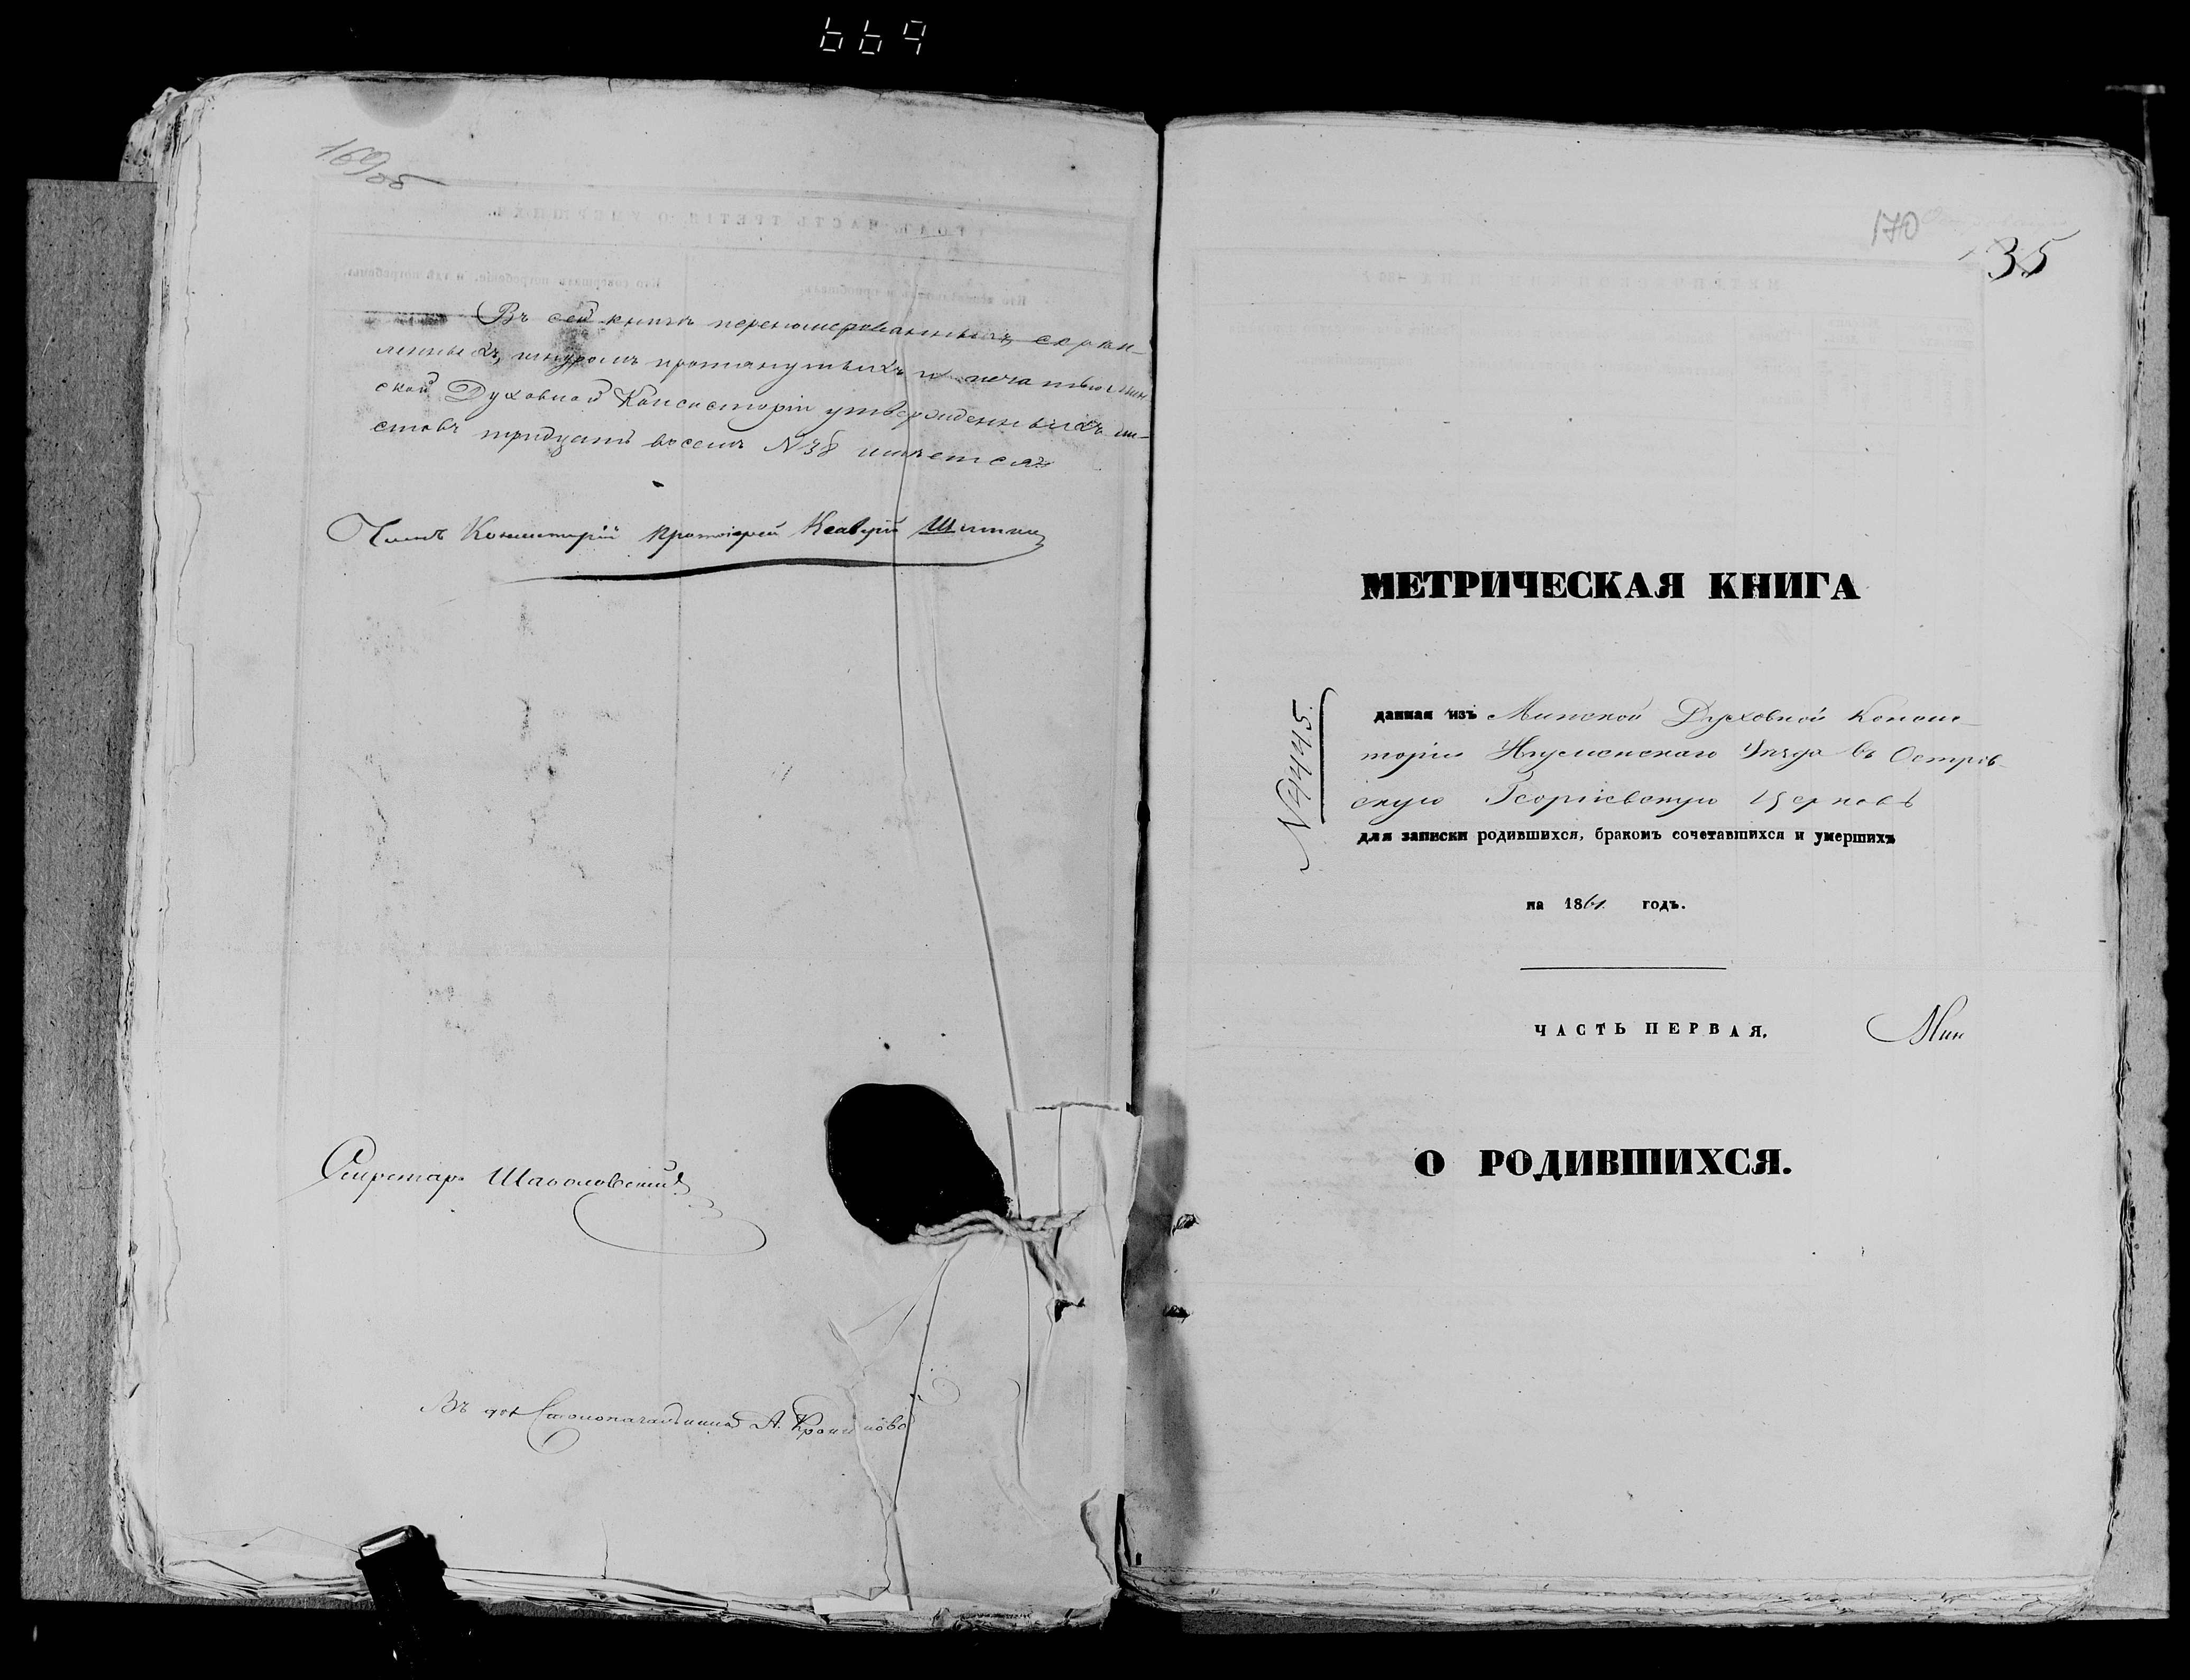 669
169об
Въ сей книгѣ перенумерованныхъ, скрѣп-
ленныхъ, шнуромъ протянутыхъ и печатью Мин-
ской Духовной Консисторіи утвержденныхъ ли-
стовъ тридцать восемь №38 имѣется
Членъ Консисторіи Протоіерей Ксаверій
Секретарь
Въ дол. Столоначальника А.
170
35
МЕТРИЧЕСКАЯ КНИГА
№4445.
данная изъ Минской Духовной Консис-
торіи Игуменскаго Уѣзда въ Островс-
скую Георгіевскую Церковь
для записки родившихся, бракомъ сочетавшихся и умершихъ
на 1861 годъ.
ЧАСТЬ ПЕРВАЯ.
Мин
О РОДИВШИХСЯ.